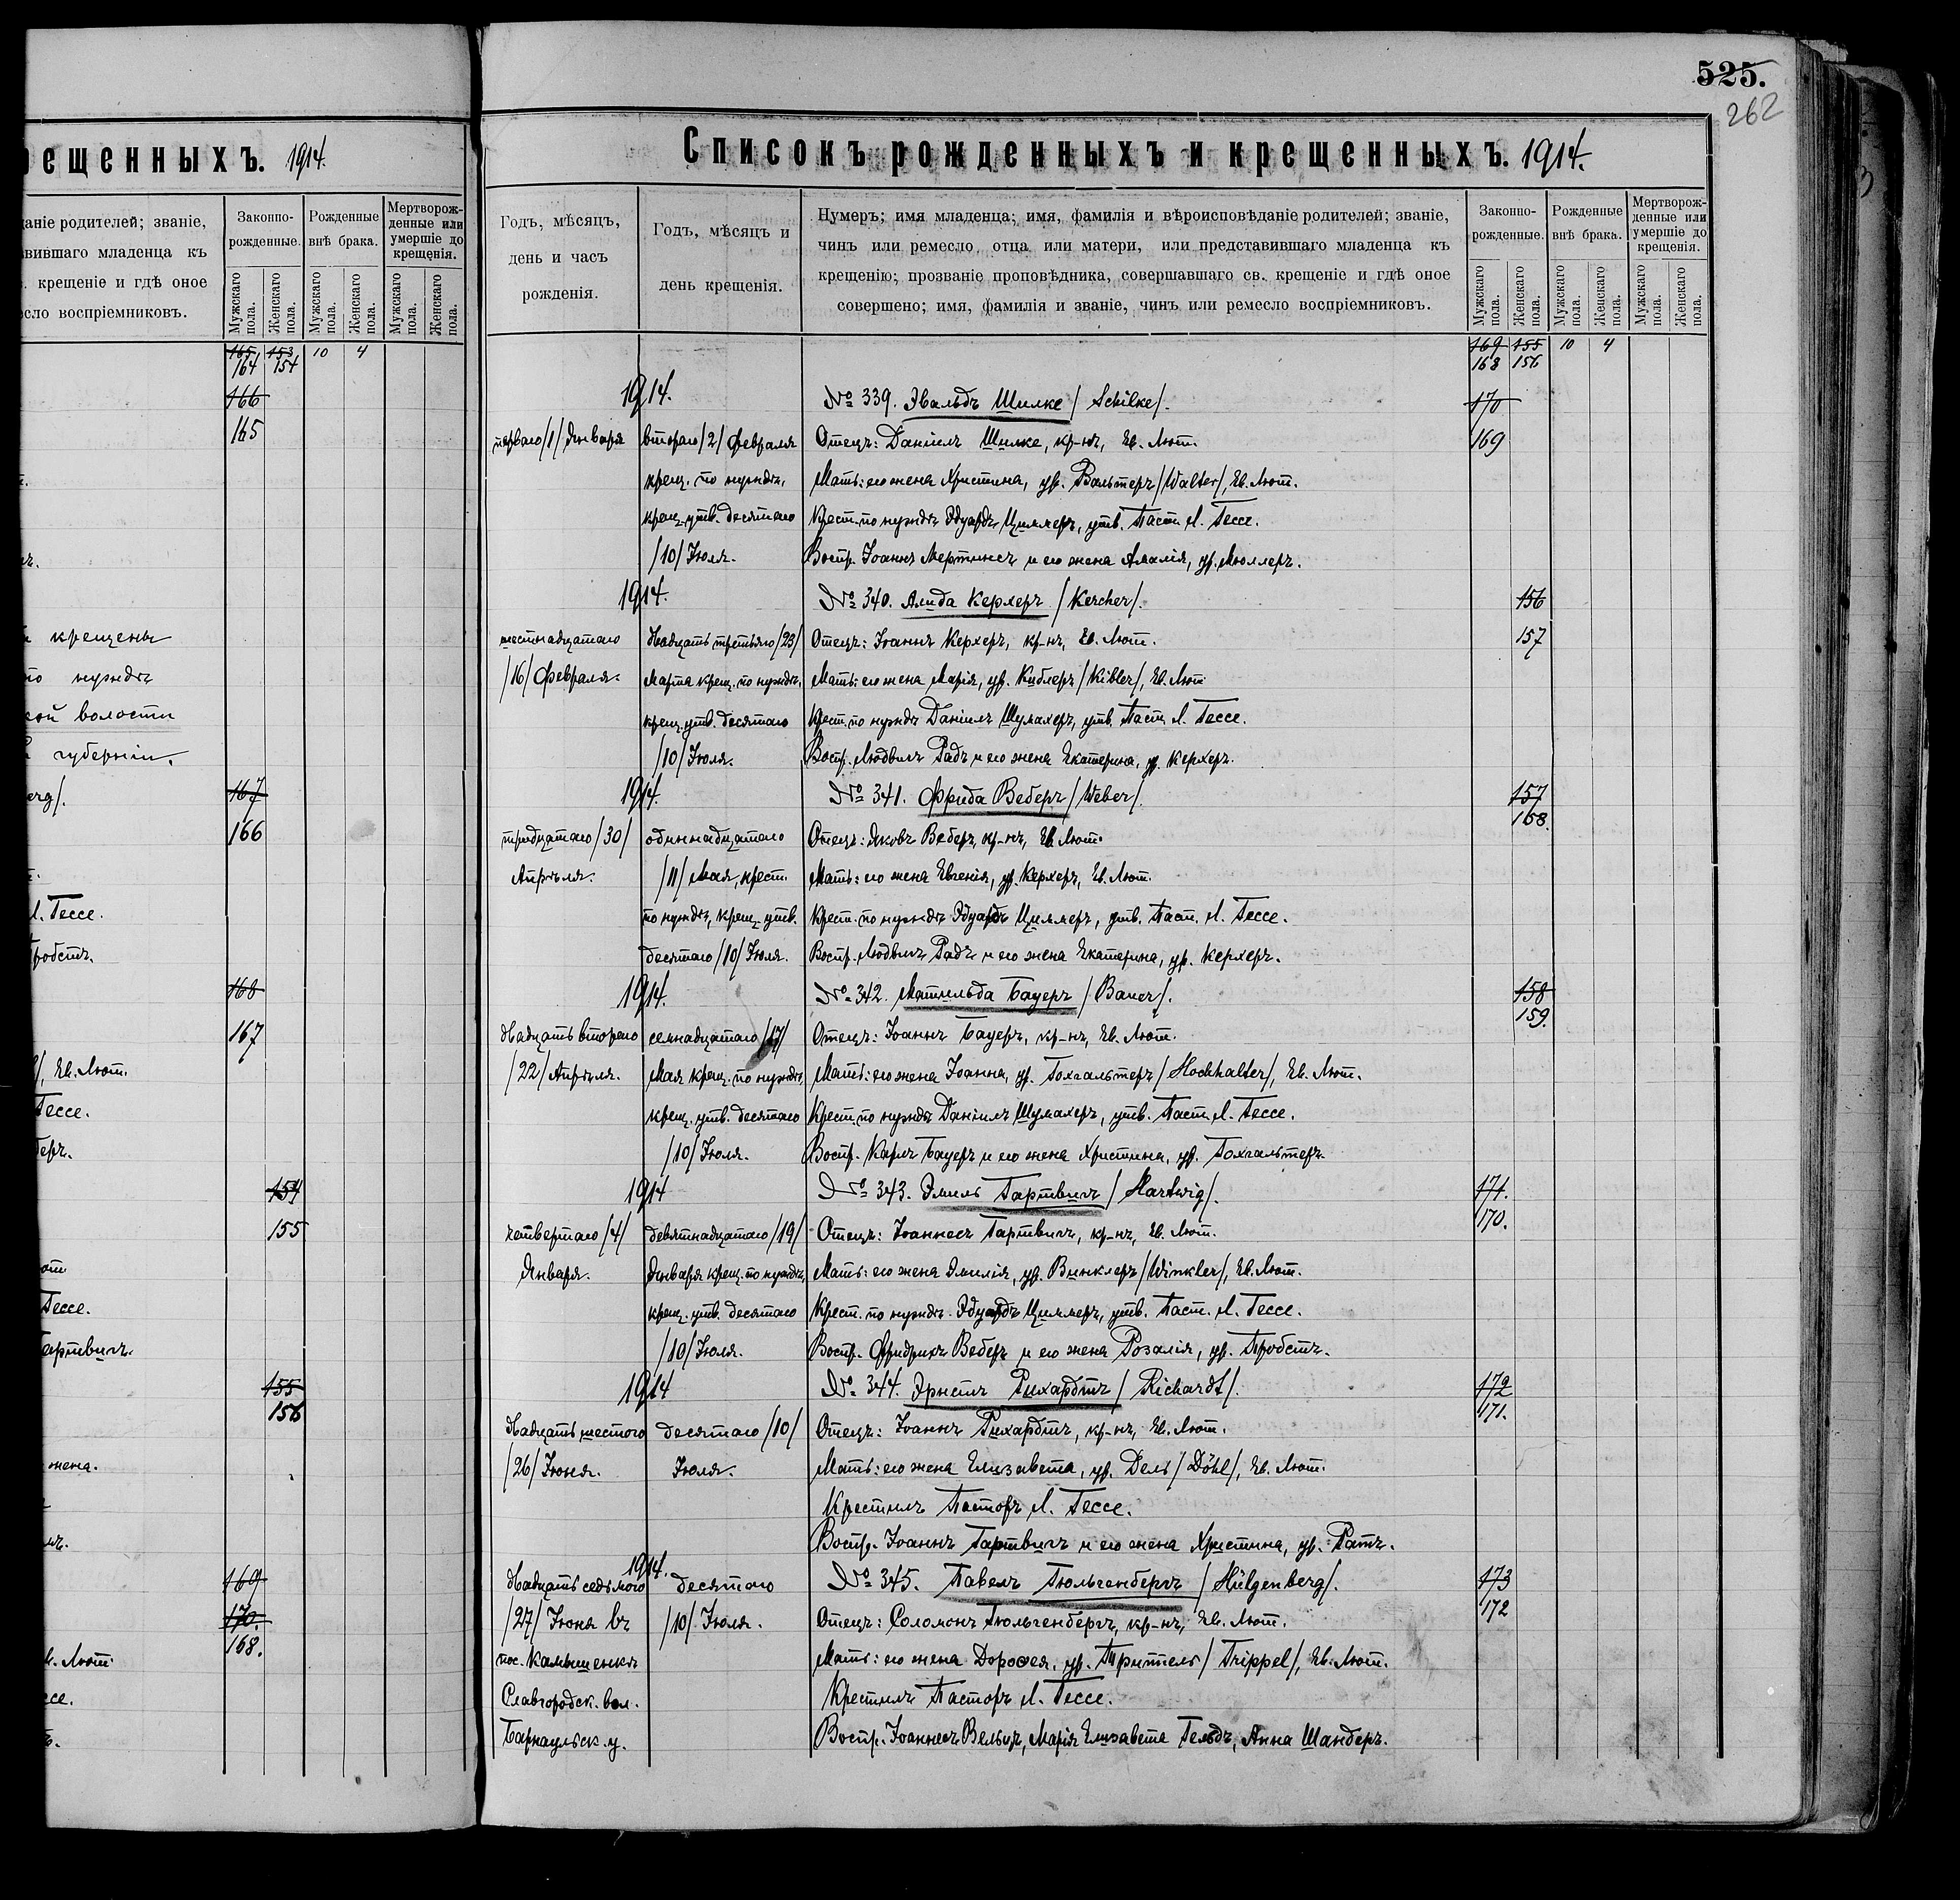 рещенныхъ. 1914.
даніе родителей; званіе,
авившаго младенца къ
. крещеніе и гдѣ оное
есло воспріемниковъ.
Законно-рожденные.
Рожденные внѣ брака.
Мертворож-денные или умершіе до крещенія.
Мужскаго пола. Женскаго пола. Мужскаго пола. Женскаго пола. Мужскаго пола. Женскаго пола.
165 153 10 4
164 154
166
165
крещены
по нуждѣ
кой волости
губерніи.
erg/. 167
166
Л. Гессе.
Пробстъ.
168
167
/, Ев. Лют.
Гессе.
беръ.
154
155
Гессе.
артвигъ.
155
156
жена.
169
170.
168.
в. Лют.
ссе.
525.
262
Списокъ рожденныхъ и крещенныхъ. 1914.
Годъ, мѣсяцъ,
день и часъ
рожденія.
Годъ, мѣсяцъ и
день крещенія.
Нумеръ; имя младенца; имя, фамилія и вѣроисповѣданіе родителей; званіе,
чинъ или ремесло отца или матери, или представившаго младенца къ
крещенію; прозваніе проповѣдника, совершавшаго св. крещеніе и гдѣ оное
совершено; имя, фамилія и званіе, чинъ или ремесло воспріемниковъ.
Законно-рожденные.
Рожденные внѣ брака.
Мертворож-денные или умершіе до крещенія.
Мужскаго пола. Женскаго пола. Мужскаго пола. Женскаго пола. Мужскаго пола. Женскаго пола.
169 155 10 4
168 156
1914. № 339. Эвальдъ Шилке /Schilke/. 170
перваго /1/ Января втораго /2/ Февраля Отецъ: Даніилъ Шилке, кр-нъ, Ев. Лют. 169
крещ. по нуждѣ, Мать: его жена Христина, ур. Вальтеръ /Walter/, Ев. Лют.
крещ. утв. десятаго Крест. по нуждѣ Эдуардъ Циммеръ, утв. Паст. Л. Гессе.
/10/ Іюля. Воспр. Іоаннъ Мертинсъ и его жена Амалія, ур. Мюллеръ.
1914. № 340. Алида Керхеръ /Kercher/. 156
шестнадцатаго двадцать третьяго /23/ Отецъ: Іоаннъ Керхеръ, кр-нъ, Ев. Лют. 157
/16/ Февраля. Марта крещ. по нуждѣ, Мать: его жена Марія, ур. Киблеръ /Kibler/, Ев. Лют.
крещ. утв. десятаго Крест. по нуждѣ Даніилъ Шумахеръ, утв. Паст. Л. Гессе.
/10/ Іюля. Воспр. Людвигъ Радъ и его жена Екатерина, ур. Керхеръ.
1914. № 341. Фрида Веберъ /Weber/. 157
158.
тридцатаго /30/ одиннадцатаго Отецъ: Яковъ Веберъ, кр-нъ, Ев. Лют.
Апрѣля. /11/ Мая, крест. Мать: его жена Евгенія, ур. Керхеръ, Ев. Лют.
по нуждѣ, крещ. утв. Крест. по нуждѣ Эдуардъ Циммеръ, утв. Паст. Л. Гессе.
десятаго /10/ Іюля. Воспр. Людвигъ Радъ и его жена Екатерина, ур. Керхеръ.
1914. № 342. Матильда Бауеръ /Bauer/. 158
159.
двадцать втораго семнадцатаго /17/ Отецъ: Іоаннъ Бауеръ, кр-нъ, Ев. Лют.
/22/ Апрѣля. Мая крещ. по нуждѣ, Мать: его жена Іоанна, ур. Гохгальтеръ /Hochhalter/, Ев. Лют.
крещ. утв. десятаго Крест. по нуждѣ Даніилъ Шумахеръ, утв. Паст. Л. Гессе.
/10/ Іюля. Воспр. Карлъ Бауеръ и его жена Христина, ур. Гохгальтеръ.
1914 № 343. Эмиль Гартвигъ /Hartwig/. 171.
170.
четвертаго /4/ девятнадцатаго /19/ Отецъ: Іоаннесъ Гартвигъ, кр-нъ, Ев. Лют.
Января. Января крещ. по нуждѣ, Мать: его жена Эмилія, ур. Винклеръ /Winkler/, Ев. Лют.
крещ. утв. десятаго Крест. по нуждѣ Эдуардъ Циммеръ, утв. Паст. Л. Гессе.
/10/ Іюля. Воспр. Фридрихъ Веберъ и его жена Розалія, ур. Пробстъ.
1914 № 344. Эрнстъ Рихардтъ /Richardt/. 172
171.
двадцать шестого десятаго /10/ Отецъ: Іоаннъ Рихардтъ, кр-нъ, Ев. Лют.
/26/ Іюня. Іюля. Мать: его жена Елизавета, ур. Дель /Döhl/, Ев. Лют.
Крестилъ Пасторъ Л. Гессе.
Воспр. Іоаннъ Гартвигъ и его жена Христина, ур. Ратъ.
1914.
двадцать седьмого десятаго № 345. Павелъ Гюльгенбергъ /Hülgenberg/. 173
/27/ Іюня въ /10/ Іюля. Отецъ: Соломонъ Гюльгенбергъ, кр-нъ, Ев. Лют. 172
пос. Камышенкѣ Мать: его жена Дороѳея, ур. Триппель /Trippel/, Ев. Лют.
Славгородск. вол. Крестилъ Пасторъ Л. Гессе.
Барнаульск. у. Воспр. Іоаннесъ Вельцъ, Марія Елизавета Гельдъ, Анна Шандеръ.